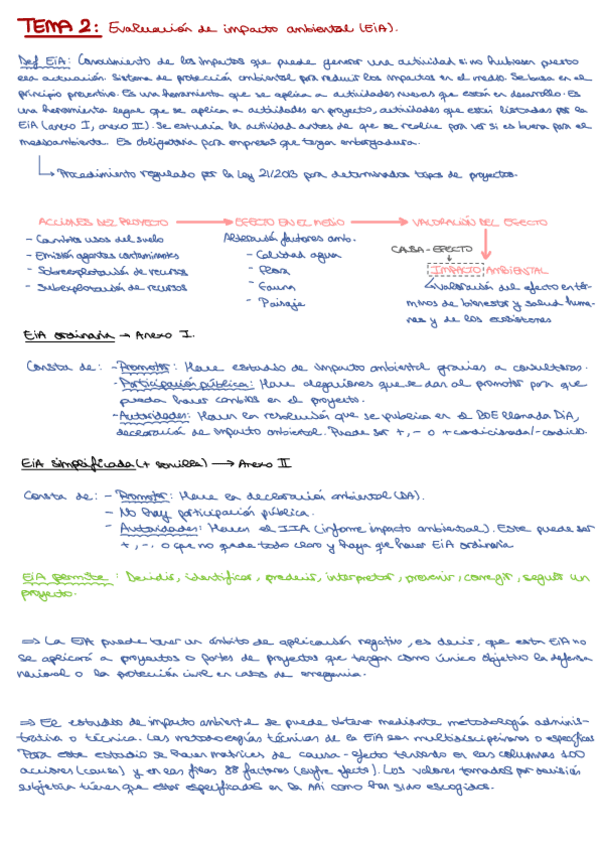 TEMA 2: Evaluación de impacto ambiental (EIA).
Def EIA: Conocimiento de los impactos que puede generar una actividad si no hubiesen puesto
esa actuación. Sistema de protección ambiental para reducir los impactos en el medio. Se basa en el
principio preventivo. Es una herramienta que se aplica a actividades nuevas que están en desarrollo. Es
una herramienta legal que se aplica a actividades en proyecto, actividades que estei listadas por la
EIA (anexo I, anexo II). Se estudia la actividad antes de que se realice para ver si es buena para el
medioambiente. Es obligatoria para empresas que tengan embergadura.
Procedimiento regulado por la Ley 21/2013 para determinados tipos de proyectos.
ACCIONES DEL PROYECTO → EFECTO EN EL MEDIO → VALORACIÓN DEL EFECTO
- Cambios usos del suelo
- Emisión agentes contaminantes
- Sobreexplotación de recursos
- Subexplotación de recursos
Alteración factores amb.
- Calidad agua
- Flora
- Fauna
- Paisaje
CAUSA-EFECTO
IMPACTO AMBIENTAL
Valoración del efecto en tér-
minos de bienestar y salud huma-
nas y de los ecosistemas
EIA ordinaria → Anexo I.
Consta de: - Promotor: Hace estudio de impacto ambiental gracias a consultoras.
- Participación pública: Hace alegaciones que se dan al promotor para que
pueda hacer cambios en el proyecto.
- Autoridades: Hacen la resolución que se publica en el BOE llamada DIA,
declaración de impacto ambiental. Puede ser +, - o +condicionada/-condicio.
EIA simplificada (+ sencilla) → Anexo II
Consta de: - Promotor: Hace la declaración ambiental (DA).
- No hay participación pública.
- Autoridades: Hacen el IIA (informe impacto ambiental). Este puede ser
+, -, o que no quede todo claro y haya que hacer EIA ordinaria
EIA permite: Decidir, identificar, predecir, interpretar, prevenir, corregir, seguir un
proyecto.
⇒ La EIA puede tener un ámbito de aplicación negativo, es decir, que esta EIA no
se aplicará a proyectos o partes de proyectos que tengan como único objetivo la defensa
nacional o la protección civil en casos de emergencia.
⇒ El estudio de impacto ambiental se puede obtener mediante metodología adminis-
trativa o técnica. Las metodologías técnicas de la EIA son multidisciplinares o específicas
Para este estudio se hacen matrices de causa-efecto teniendo en las columnas 100
acciones (causa) y en las filas 88 factores (sufre efecto). Los valores tomados por decisión
subjetiva tienen que estar especificados en la AAi como han sido escogidos.